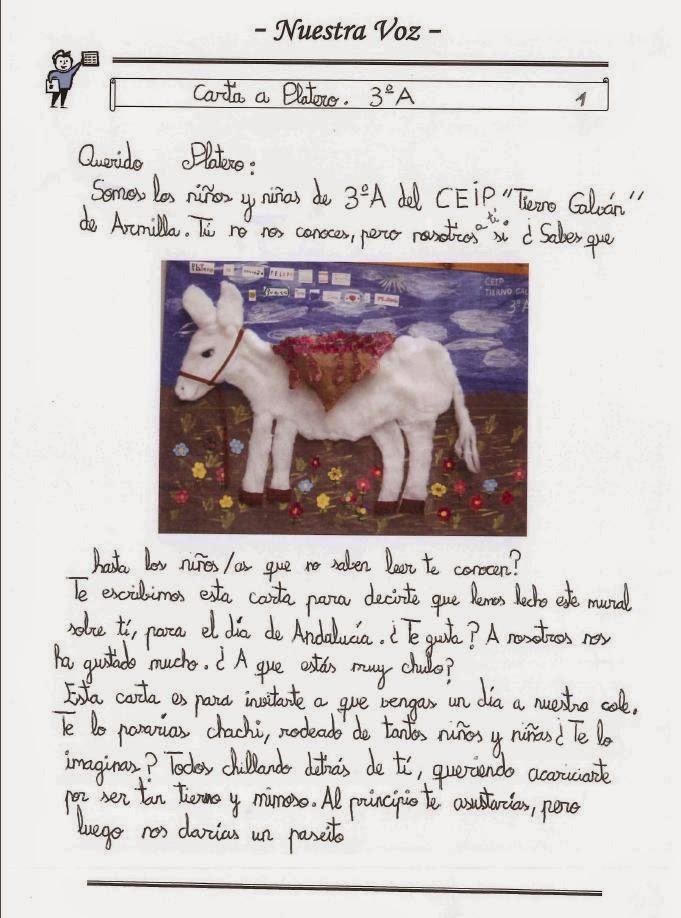 - Nuestra Voz -
Carta a Platero. 3ºA 1
Querido Platero:
Somos los niños y niñas de 3ºA del CEIP "Tierno Galván"
de Armilla. Tú no nos conoces, pero nosotros a ti si ¿Sabes que
Platero
CEIP
TIERNO GAL
3ºA
hasta los niños/as que no saben leer te conocen?
Te escribimos esta carta para decirte que hemos hecho este mural
sobre tí, para el día de Andalucía. ¿Te gusta? A nosotros nos
ha gustado mucho. ¿A que estás muy chulo?
Esta carta es para invitarte a que vengas un día a nuestro cole.
Te lo pasarías chachi, rodeado de tantos niños y niñas ¿Te lo
imaginas? Todos chillando detrás de tí, queriendo acariciarte
por ser tan tierno y mimoso. Al principio te asustarías, pero
luego nos darías un paseito